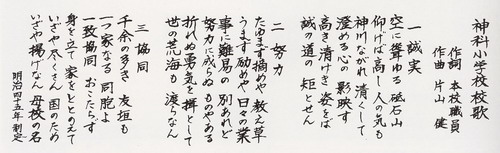 神科小学校校歌
作詞 本校職員
作曲 片山 健
一 誠実
空に聳ゆる 砥石山
仰げば高し 人の気も
神川ながれ 清くして
澄める心の 影映す
高き清けき 姿をば
誠の道の 矩とせん
二 努力
たゆまず摘めや 教え草
うまず励めや 日々の業
事に難易の 別あれど
努力に成らぬ ものやある
折れぬ勇気を 楫として
世の荒海も 渡らなん
三 協同
千余の多き 友垣も
一つ家なる 同胞よ
一致協同 おこたらず
身を立て 家をととのえて
いざや尽くさん 国のため
いざや揚げなん 母校の名
明治四十五年 制定